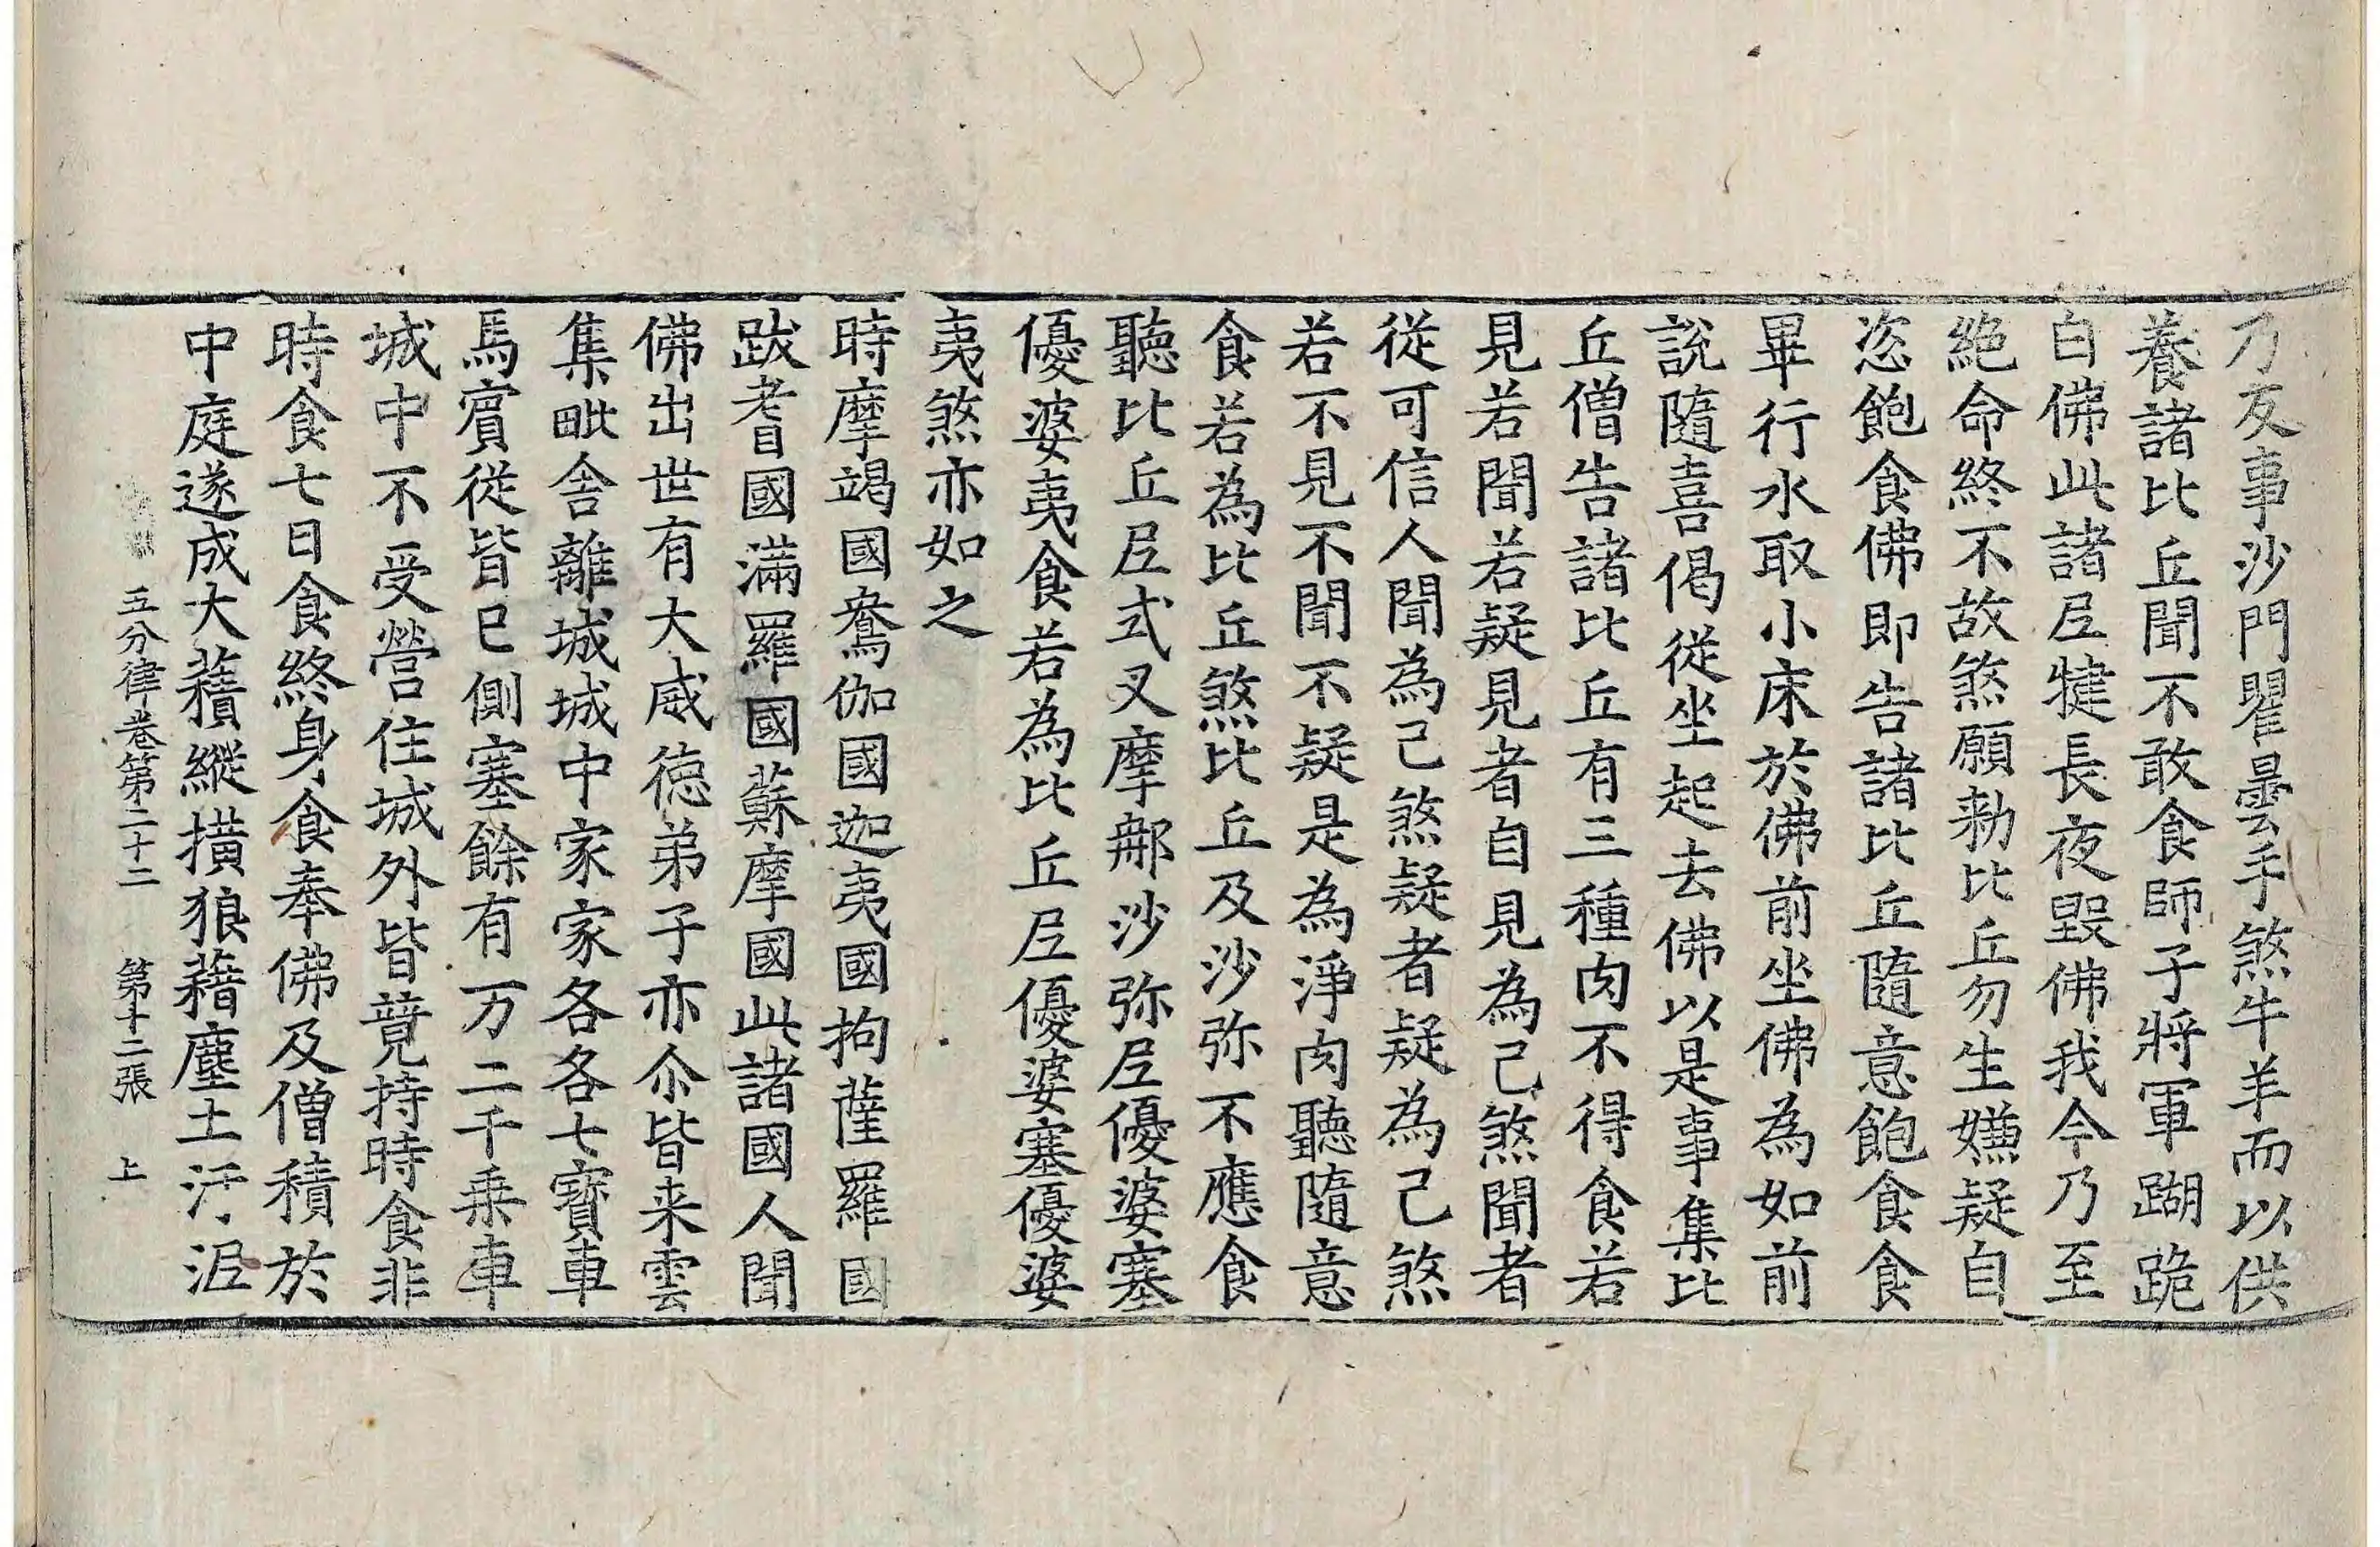 乃友事沙門瞿曇手煞牛羊而以供
養諸比丘聞不敢食師子將軍䠒跪
白佛此諸𡰱揵長夜毀佛我今乃至
絕命終不故煞願勑比丘勿生嫌疑自
恣飽食佛即告諸比丘隨意飽食食
畢行水取小床於佛前坐佛為如前
說隨喜偈從坐起去佛以是事集比
丘僧告諸比丘有三種肉不得食若
見若聞若疑見者自見為己煞聞者
從可信人聞為己煞疑者疑為己煞
若不見不聞不疑是為淨肉聽隨意
食若為比丘煞比丘及沙弥不應食
聽比丘𡰱式叉摩𨙻沙弥𡰱優婆塞
優婆夷食若為比丘𡰱優婆塞優婆
夷煞亦如之
時摩竭國鴦伽國迦夷國拘薩羅國
跋耆國滿羅國蘇摩國此諸國人聞
佛出世有大威德弟子亦尒皆来雲
集毗舍離城城中家家各各七寶車
馬賓從皆已側塞餘有万二千乘車
城中不受營住城外皆竟持時食非
時食七日食終身食奉佛及僧積於
中庭遂成大𧂐縱撗狼藉塵土汙泥
五分律卷第二十二 第十二張 上